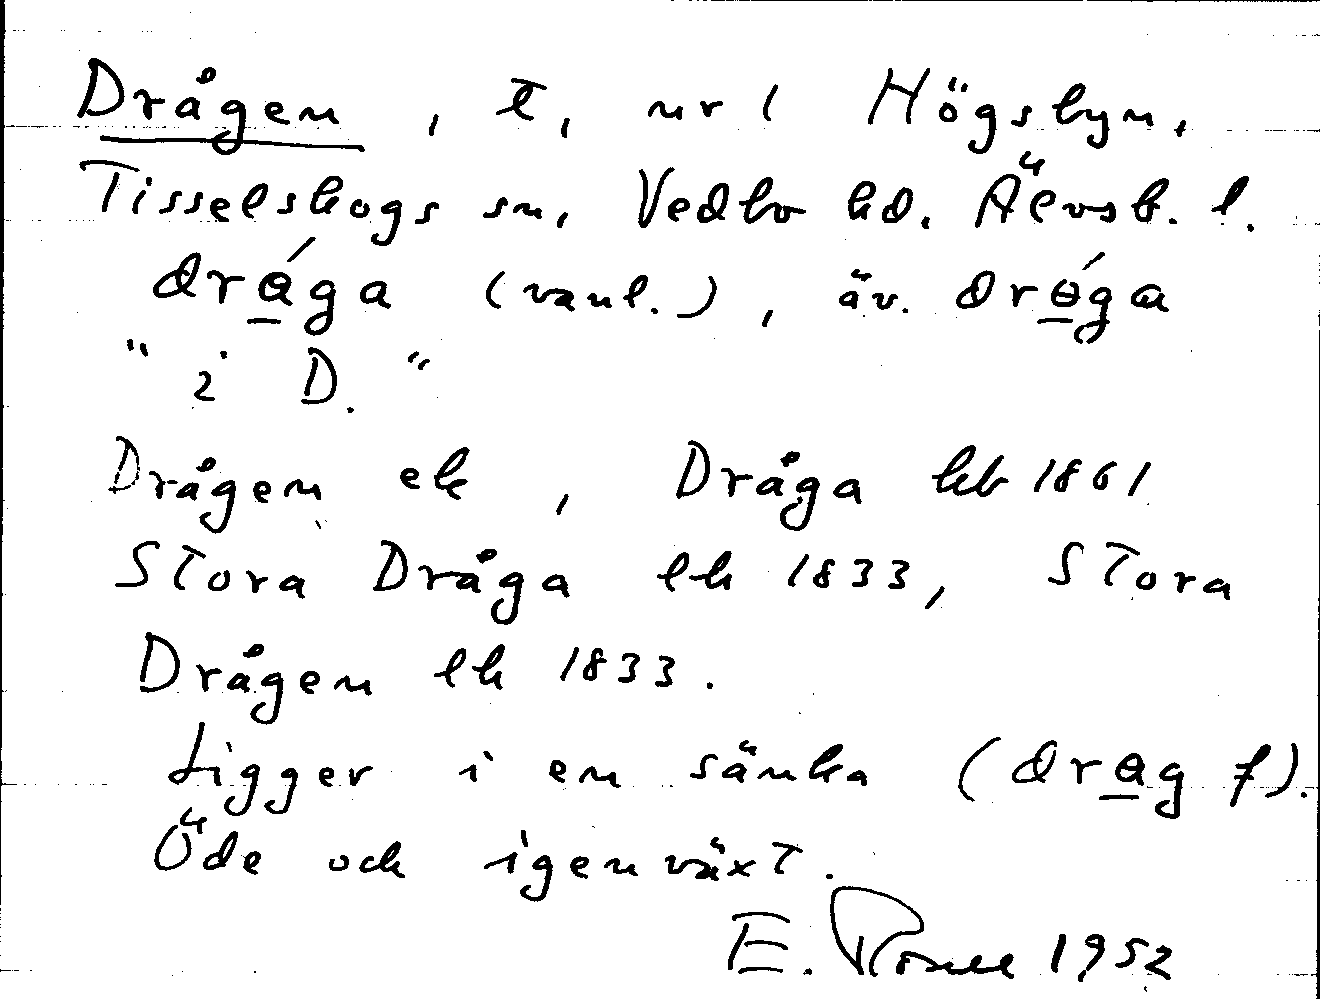 Drågen, t, nr 1 Högsbyn,
Tisselskogs sn, Vedbo hd. Älvsb. l.
drɵ́ga (vanl.), äv. drɵ́ga
"i D."
Drågen ek, Dråga kb 1861
Stora Dråga lk 1833, Stora
Drågen lk 1833.
Ligger i en sänka (drɵg f).
Öde och igenväxt.
E. 1952